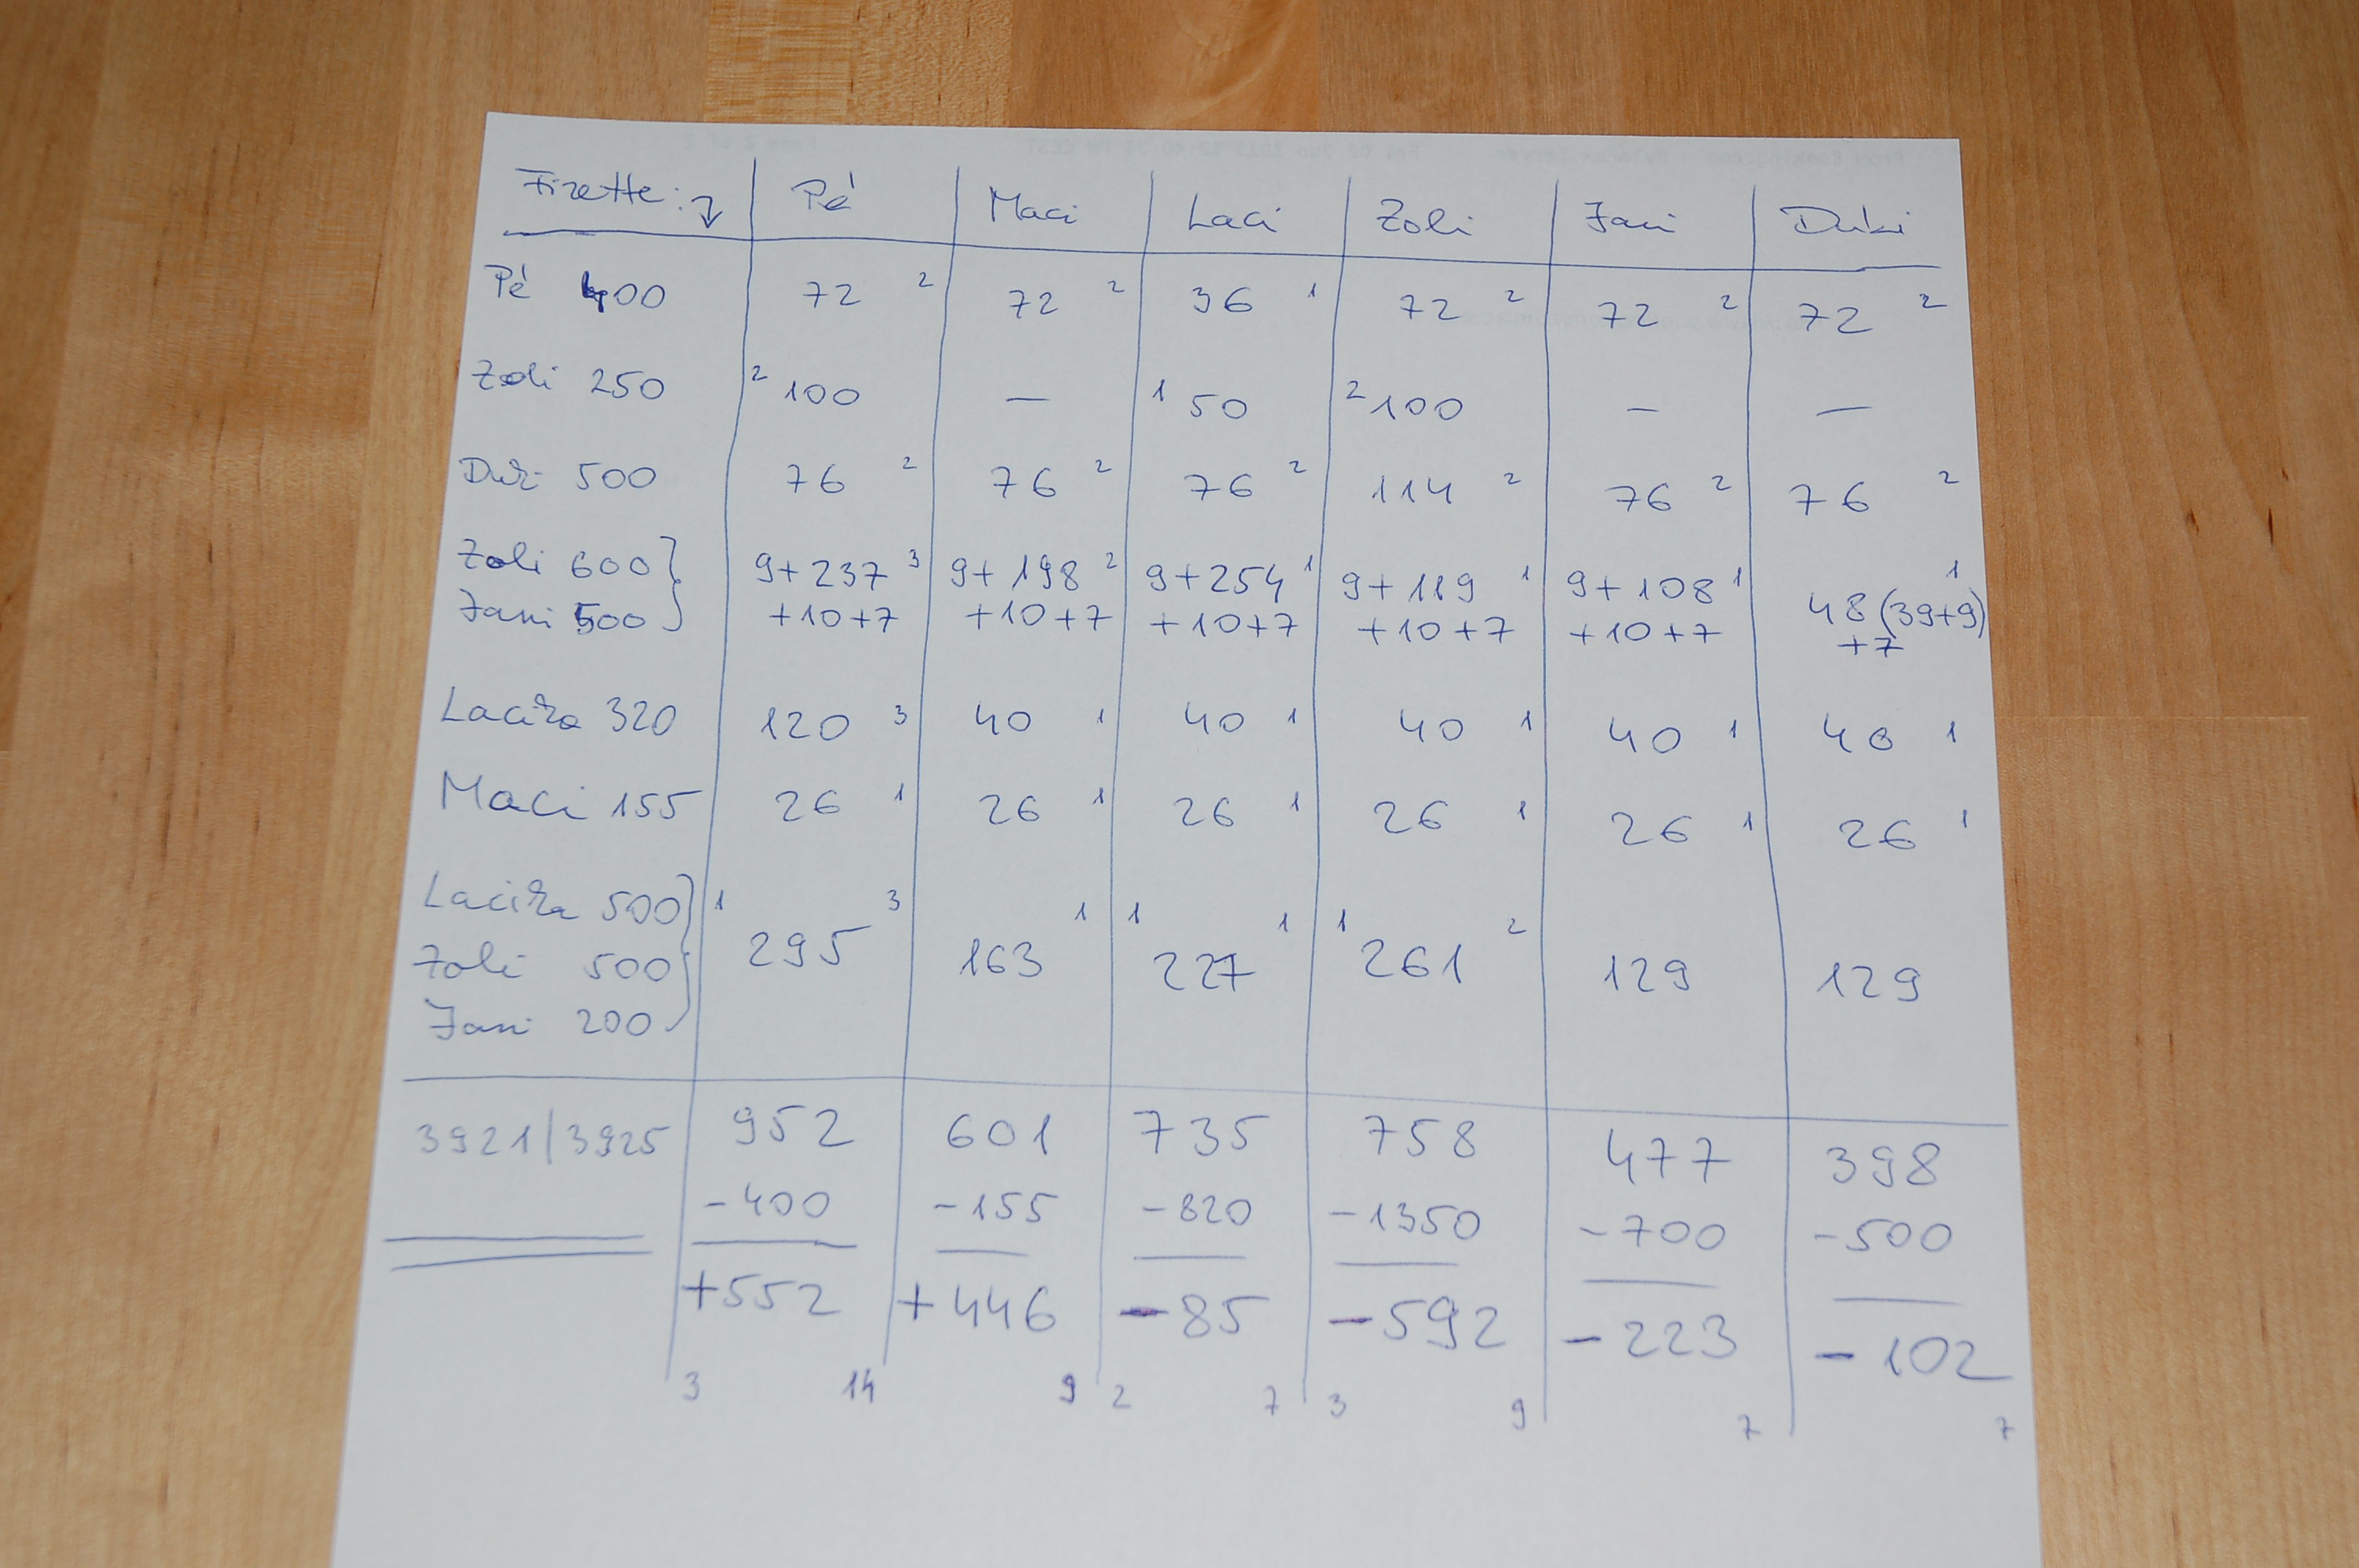 Fizette: ↴ Pé Maci Laci Zoli Jani Duki
Pé 400 72 2 72 2 36 1 72 2 72 2 72 2
Zoli 250 2 100 — 1 50 2 100 — —
Duki 500 76 2 76 2 76 2 114 2 76 2 76 2
Zoli 600} 9+237 3 9+198 2 9+254 1 9+119 1 9+108 1 48(39+9) 1
Jani 500} +10+7 +10+7 +10+7 +10+7 +10+7 +7
Lacika 320 120 3 40 1 40 1 40 1 40 1 40 1
Maci 155 26 1 26 1 26 1 26 1 26 1 26 1
Lacika 500} 1 3 1 1 1 1 2
Zoli 500} 295 163 227 261 129 129
Jani 200}
3921|3925 952 601 735 758 477 398
-400 -155 -820 -1350 -700 -500
+552 +446 -85 -592 -223 -102
3 14 9 2 7 3 9 7 7